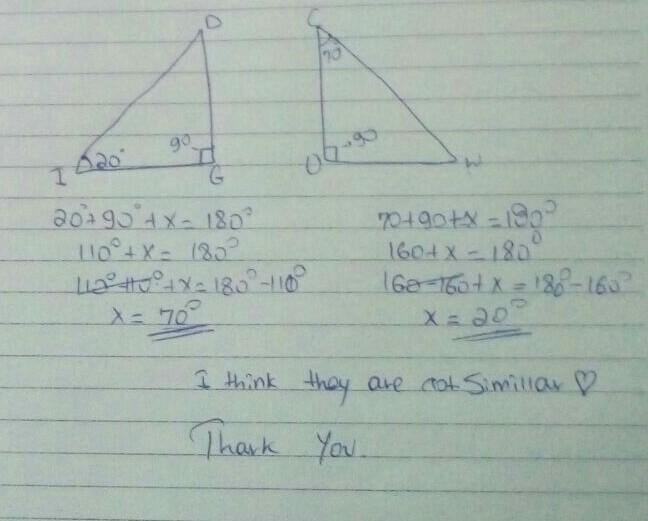 D
C
70
90
20°
I
G
90
O
W
20°+90°+x=180°
110°+x=180°
110°-110°+x=180°-110°
x=70°
70+90+x=180°
160+x=180°
160-160+x=180°-160°
x=20°
I think they are not Simillar ♡
Thank You.